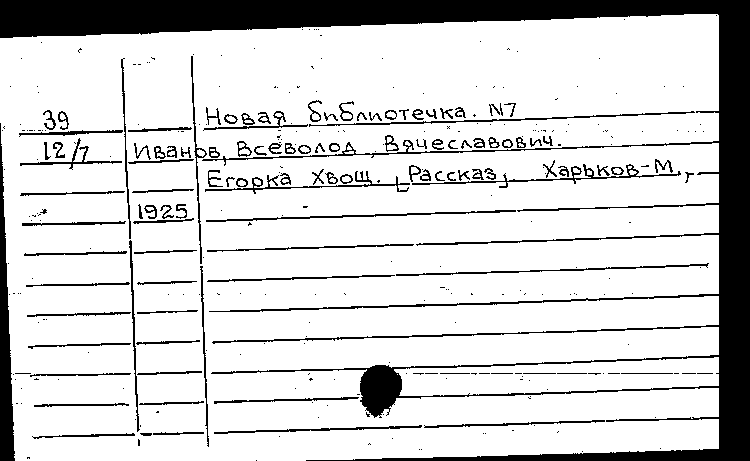 39 Новая библиотечка. N7
12/7 Иванов, Всеволод, Вячеславович.
Егорка Хвощ. [Рассказ] Харьков-М.,
1925